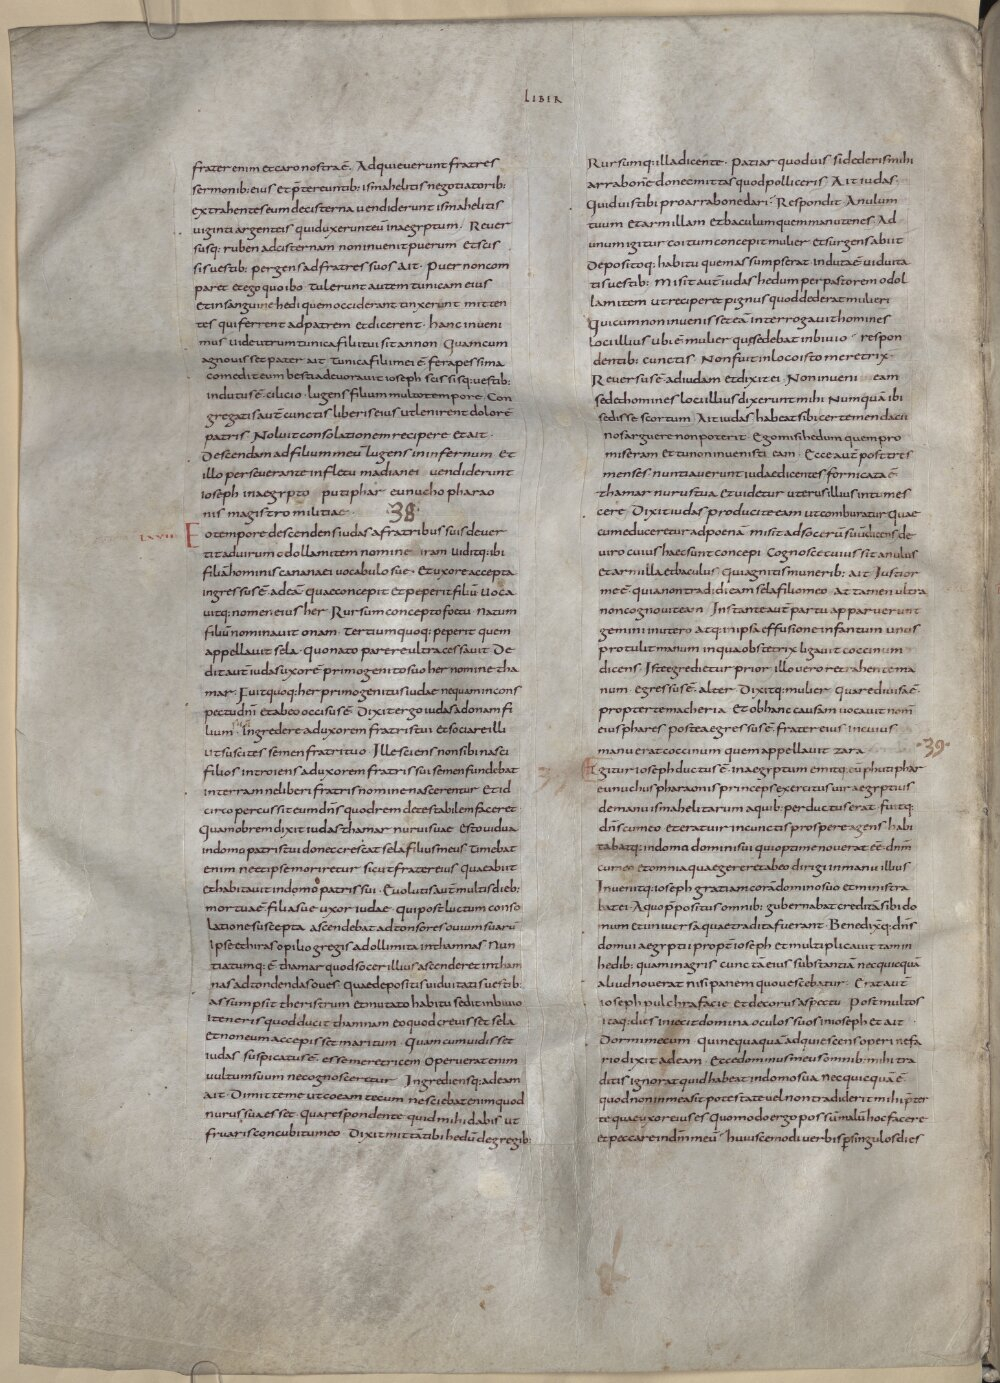 LIBER
frater enim et caro nostra ē. Adquieverunt fratres
sermonib: eius et p̄tereuntib: ismahelitis negotiatorib:
extrahentes eum de cisterna vendiderunt ismahelitis
viginti argenteis qui duxerunt eū in aegyptum. Rever
susq: ruben ad cisternam non invenit puerum et scis
sis vestib: pergens ad fratres suos ait. Puer non com
paret et ego quo ibo tulerunt autem tunicam eius
et in sanguine hedi quem occiderant tinxerunt mitten
tes qui ferrent ad patrem et dicerent. hanc inveni
mus vide utrum tunica filii tui sit an non Quam cum
agnovisset pater ait. Tunica filii mei ē fera pessima
comedit eum bestia devoravit ioseph scissisq: vestib:
indutus ē cilicio. lugens filium multo tempore. Con
gregatis aut̄ cunctis liberis eius ut lenirent dolorē
patris. Noluit consolationem recipere et ait.
Descendam ad filium meū lugens in infernum. Et
illo perseverante in fletu madianei vendiderunt
ioseph in aegypto putiphar eunucho pharao
nis magistro militiae. 38
LXVII Eo tempore descendens iudas a fratribus suis dever
tit ad virum odollamitem nomine iram viditq: ibi
filiā hominis cananaei vocabulo sue. Et uxore accepta
ingressus ē ad eā Quae concepit et peperit filiū voca
vitq: nomen eius her Rursum concepto foetu natum
filiū nominavit onam. Tertium quoq: peperit quem
appellavit sela. Quo nato parere ultra cessavit De
dit aut̄ iudas uxorē primogenito suo her nomine tha
mar. Fuitquoq: her primogenitus iudae nequam in cons
pectu dn̄i et ab eo occisus ē Dixit ergo iudas ad onam fi
lium suū. Ingredere ad uxorem fratris tui et sociare illi
ut suscites semen fratri tuo. Ille sciens non sibi nasci
filios introiens ad uxorem fratris sui semen fundebat
in terram ne liberi fratris nomine nascerentur Et id
circo percussit eum dn̄s quod rem detestabilem faceret
Quam ob rem dixit iudas thamar nurui suae esto vidua
in domo patris tui donec crescat sela filius meus timebat
enim ne et ipse moriretur sicut fratres eius Quae abiit
et habitavit in domo patris sui. Evolutis aut̄ multis dieb:
mortua ē filia sue uxor iudae Qui post luctum conso
latione suscepta ascendebat ad tonsores ovium suarū
ipse et hiras opilio gregis adollimita in thamnas Nun
tiatumq: ē thamar quod socer illius ascenderet in tham
nas ad tondendas oves. Quae depositis viduitatis vestib:
assumpsit theristrum et mutato habitu sedit in bivio
iteneris quod ducit thamnam eo quod crevisset sela
et non eum accepisset maritum Quam cum vidisset
iudas suspicatus ē esse meretricem operuerat enim
vultum suum ne cognosceretur Ingrediensq: ad eam
ait. Dimitte me ut coeam tecum nesciebat enim quod
nurus sua esset Qua respondente quid mihi dabis ut
fruaris concubitu meo. Dixit mittā tibi hedū de gregib:
Rursumq: illa dicente. Patiar quod vis si dederis mihi
arrabonē donec mittas quod polliceris Ait iudas.
Quid vis tibi pro arrabone dari. Respondit Anulum
tuum et armillam et baculum quem manu tenes Ad
unum igitur coitum concepit mulier et surgens abiit
Depositoq: habitu quem assumpserat induta ē viduita
tis vestib: Misit aut̄ iudas hedum per pastorem odol
lamitem ut reciperet pignus quod dederat mulieri
Qui cum non invenisset eā interrogavit homines
loci illius ubi ē mulier quę sedebat in bivio respon
dentib: cunctis Non fuit in loco isto meretrix.
Reversus ē ad iudam et dixit ei Non inveni eam
sed et homines loci illius dixerunt mihi Numquā ibi
sedisse scortum Ait iudas habeat sibi certe mendacii
nos arguere non poterit Ego misi hedum quem pro
miseram et tu non invenisti eam. Ecce aut̄ post tris
menses nuntiaverunt iudae dicentes fornicata ē
thamar nurus tua et videtur uterus illius intumes
cere Dixit iudas producite eam ut comburatur Quae
cum educeretur ad poenā misit ad socerū suū dicens de
viro cuius haec sunt concepi Cognosce cuius sit anulus
et armilla et baculus Qui agnitis munerib: ait Iustior
me ē quia non tradidi eam sela filio meo At tamen ultra
non cognovit eam Instante aut̄ partu apparuerunt
gemini in utero atq: in ipsa effusione infantum unus
protulit manum in qua obstetrix ligavit coccinum
dicens. Iste egredietur prior illo vero retrahente ma
num egressus ē alter Dixitq: mulier Quare divisa ē
propter te maceria Et ob hanc causam vocavit nom̄
eius phares postea egressus ē frater eius in cuius
manu erat coccinum quem appellavit zara .39.
Igitur ioseph ductus ē in aegyptum emitq: eū phutiphar
eunuchus pharaonis princeps exercitus vir aegyptius
de manu ismahelitarum a quib: perductus erat fuitq:
dn̄s cum eo et erat vir in cunctis prospere agens habi
tabatq: in domo domini sui qui optime noverat eē dn̄m
cum eo et omnia quae gereret ab eo dirigi in manu illius
Invenitq: ioseph gratiam corā domino suo et ministra
bat ei A quo p̄positus omnib: gubernabat creditā sibi do
mum et universa quae tradita fuerant. Benedixq: dn̄s
domui aegypti propt̄ ioseph et multiplicavit tam in
hedib: quam in agris cunctā eius substantiā nec quicquā
aliud noverat nisi panem quo vescebatur. Erat aut̄
ioseph pulchra facie et decorus aspectu Post multos
itaq: dies iniecit domina oculos suos in ioseph et ait
Dormi mecum Qui nequaquā adquiescens operi nefa
rio dixit ad eam Ecce dominus meus omnib: mihi tra
ditis ignorat quid habeat in domo sua nec quicquā ē
quod non in mea sit potestate vel non tradiderit mihi p̄ter
te quae uxor eius es Quomodo ergo possum malū hoc facere
et peccare in dn̄m meū huiuscemodi verbis p̄ singulos dies